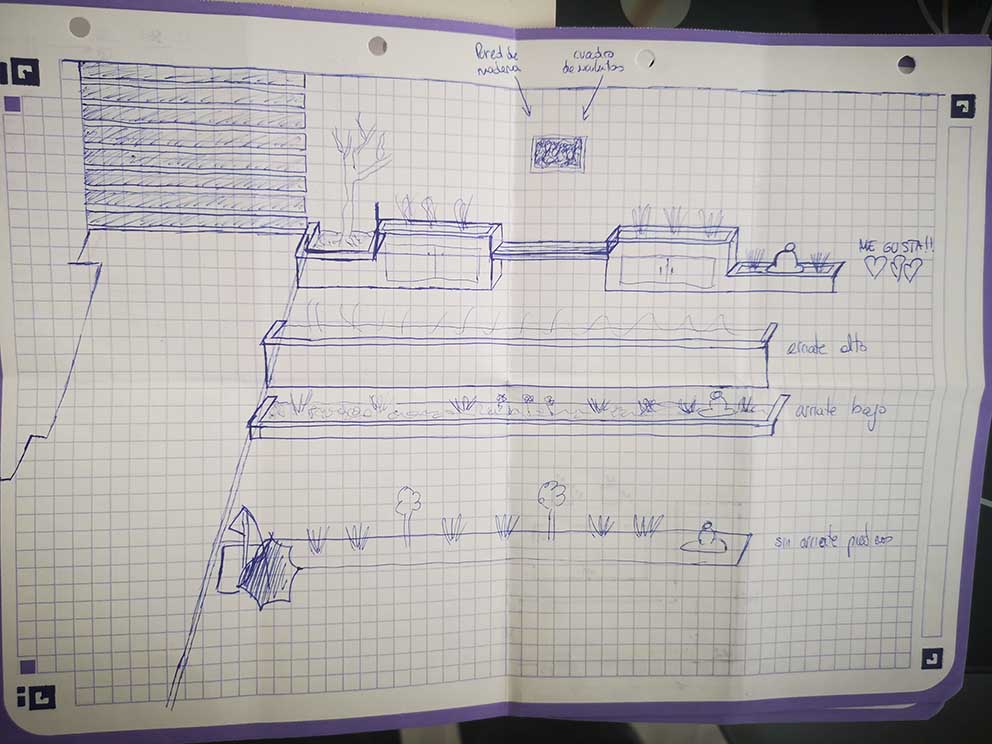 Pared de
madera
cuadro
de
ME GUSTA!!
arriate alto
arriate bajo
sin arriate